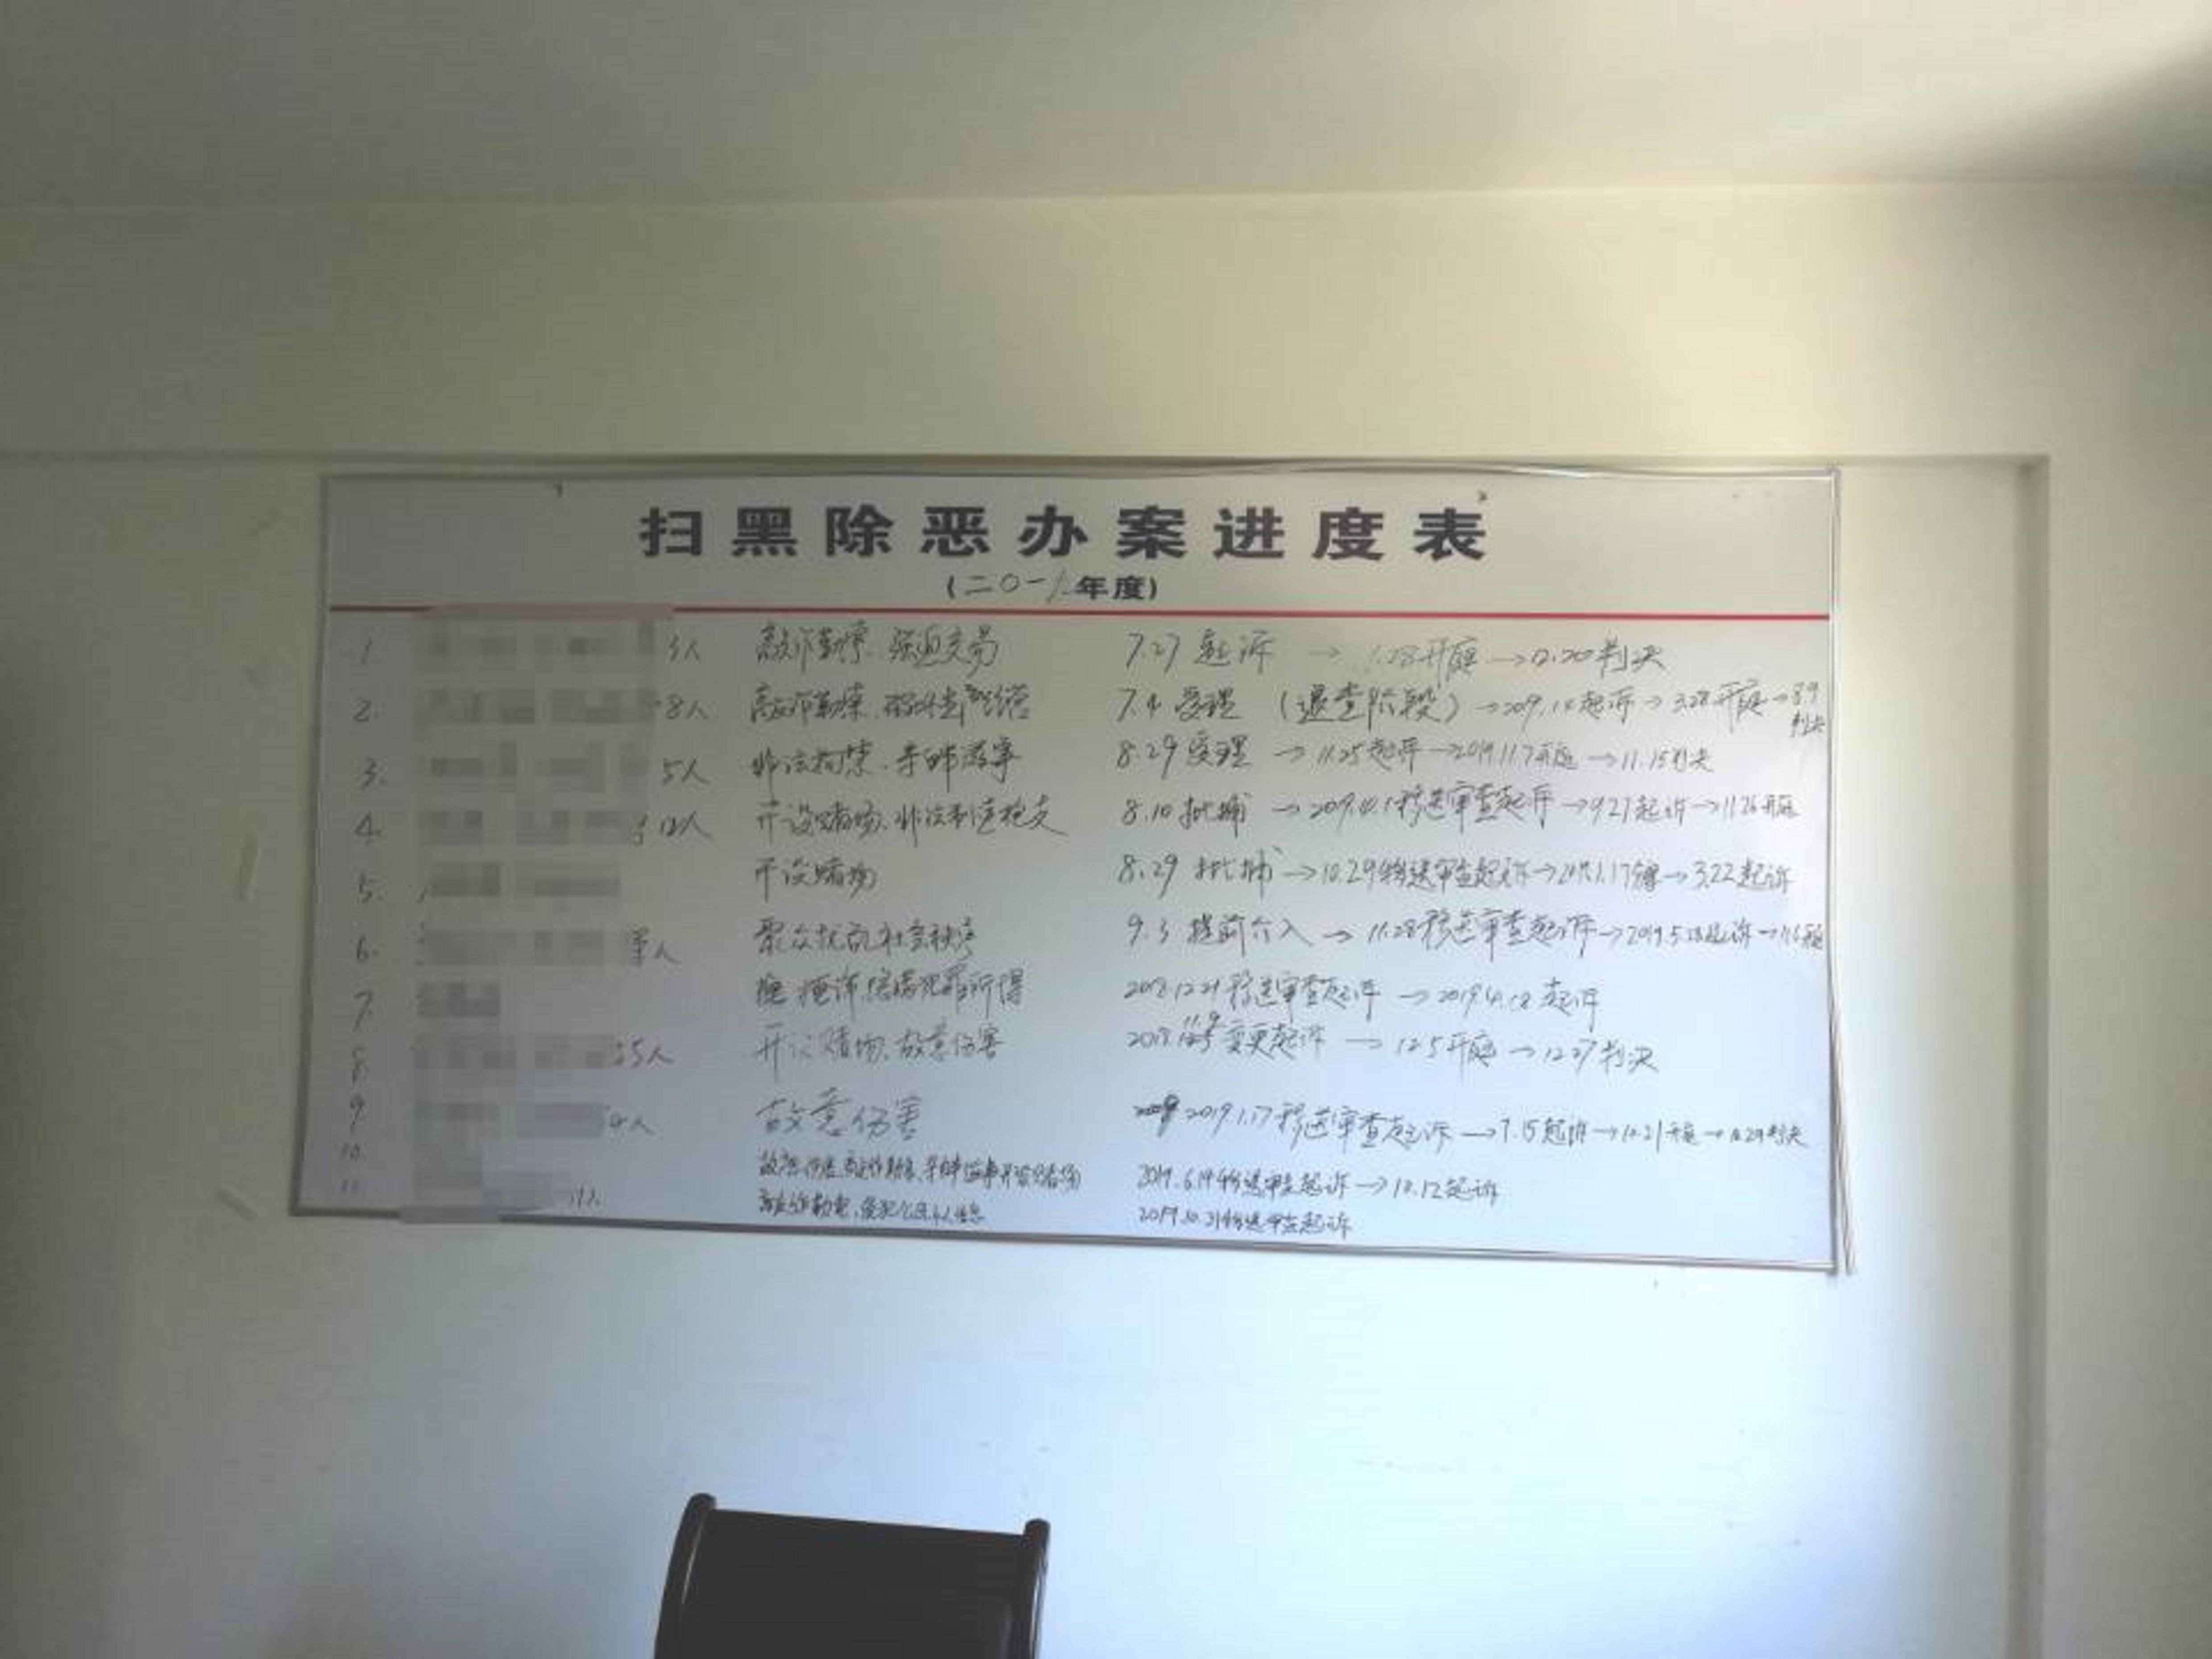 扫黑除恶办案进度表
(二〇一八年度)
1. 3人 敲诈勒索、强迫交易 7.27 起诉 → 开庭 → 12.20判决
2. 8人 敲诈勒索、 7.4 受理 (退查阶段) → 起诉 → 3.28开庭 → 8.9判决
3. 5人 非法拘禁、寻衅滋事 8.29 受理 → 11.25起诉 → 2019.11.7开庭 → 11.15判决
4. 12人 开设赌场、非法制造枪支 8.10 批捕 → 移送审查起诉 → 9.27起诉 → 11.26开庭
5. 开设赌场 8.29 批捕 → 10.29移送审查起诉 → → 3.22起诉
6. 人 聚众扰乱社会秩序 9.3 提前介入 → 11.28移送审查起诉 → 起诉 → 开庭
7. 掩饰隐瞒犯罪所得 2018.12.21移送审查起诉 → 2019.4.18起诉
8. 5人 开设赌场、故意伤害 2018 11.9 变更起诉 → 12.5开庭 → 12.27判决
9. 4人 故意伤害 2019.1.17移送审查起诉 → 7.15起诉 → 10.21开庭 → 10.29判决
10. 故意伤害、敲诈勒索、寻衅滋事、开设赌场 2019.6.19移送审查起诉 → 10.12起诉
11. 敲诈勒索、侵犯公民个人信息 2019.10.21移送审查起诉